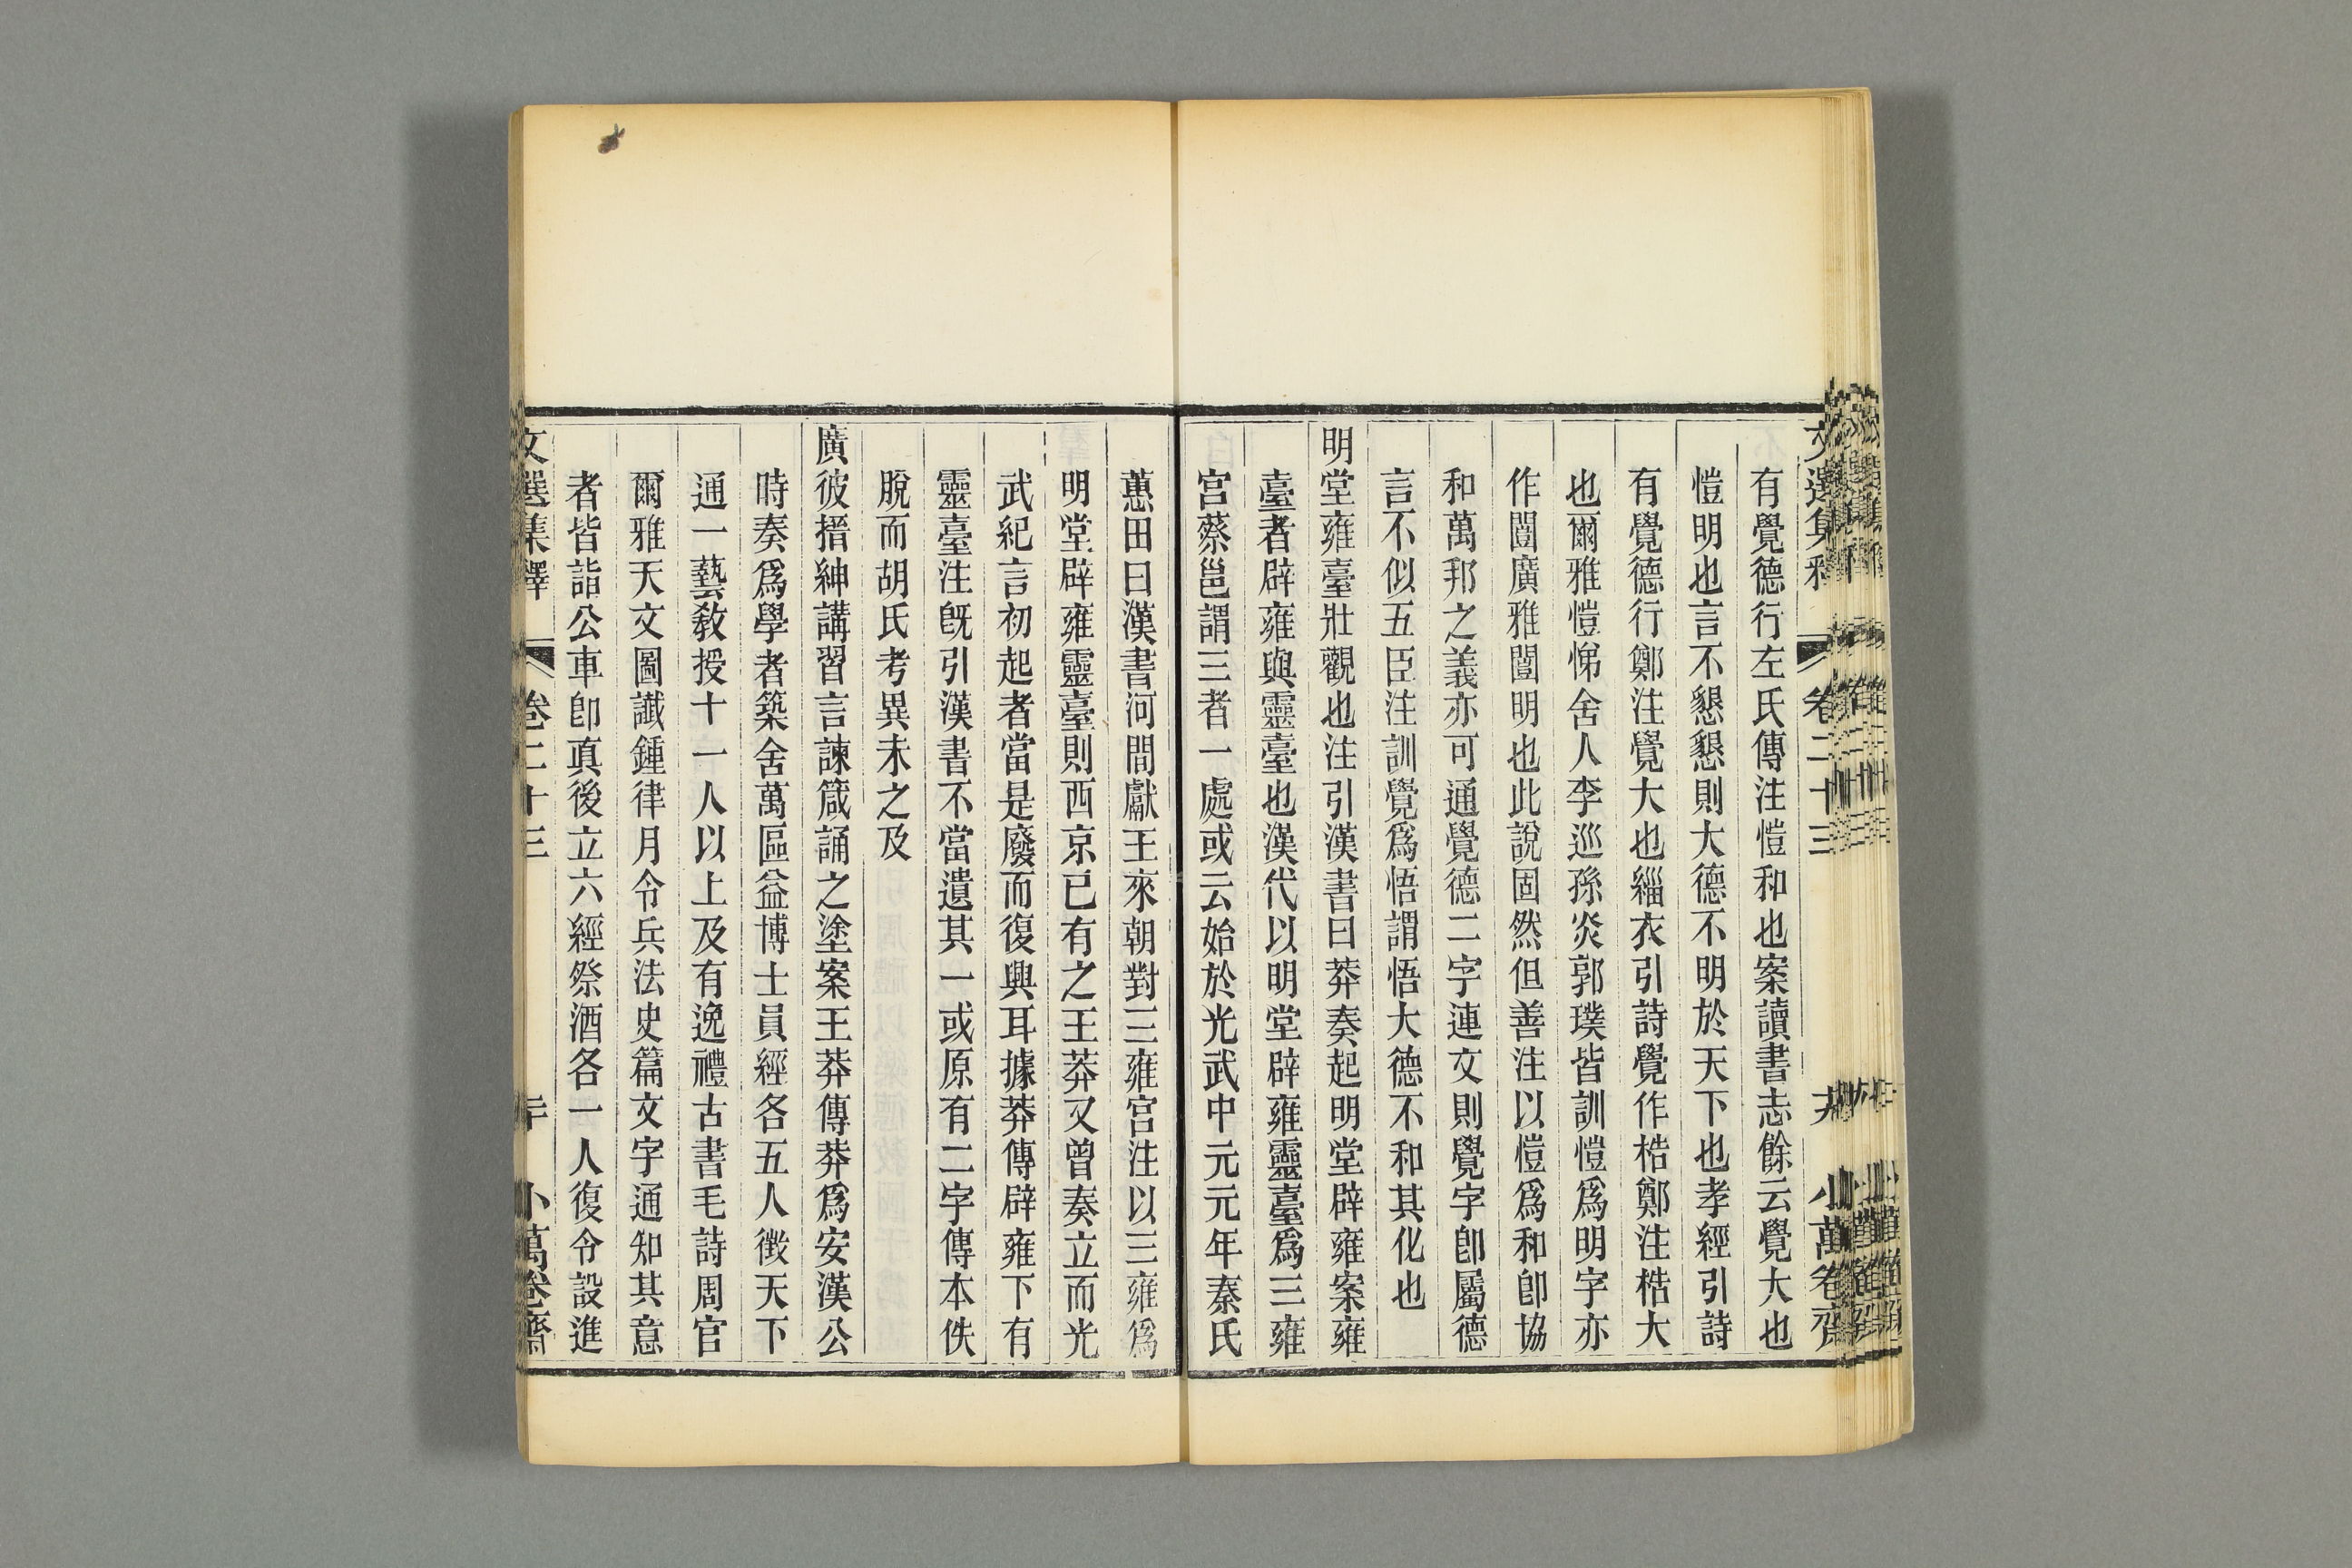 有覺德行左氏傳注愷和也案讀書志餘云覺大也
愷明也言不懇懇則大德不明於天下也孝經引詩
有覺德行鄭注覺大也緇衣引詩覺作梏鄭注梏大
也爾雅愷悌舍人李巡孫炎郭璞皆訓愷爲明字亦
作闓廣雅闓明也此說固然但善注以愷爲和卽協
和萬邦之義亦可通覺德二字連文則覺字卽屬德
言不似五臣注訓覺爲悟謂悟大德不和其化也
明堂雍臺壯觀也注引漢書曰莽奏起明堂辟雍案雍
臺者辟雍與靈臺也漢代以明堂辟雍靈臺爲三雍
宮蔡邕謂三者一處或云始於光武中元元年秦氏
蕙田曰漢書河間獻王來朝對三雍宮注以三雍爲
明堂辟雍靈臺則西京已有之王莽又曾奏立而光
武紀言初起者當是廢而復興耳據莽傳辟雍下有
靈臺注旣引漢書不當遺其一或原有二字傳本佚
脫而胡氏考異未之及
廣彼搢紳講習言諫箴誦之塗案王莽傳莽爲安漢公
時奏爲學者築舍萬區益博士員經各五人徵天下
通一藝敎授十一人以上及有逸禮古書毛詩周官
爾雅天文圖讖鍾律月令兵法史篇文字通知其意
者皆詣公車卽眞後立六經祭酒各一人復令設進
文選集釋 卷二十三 二十 小萬卷齋